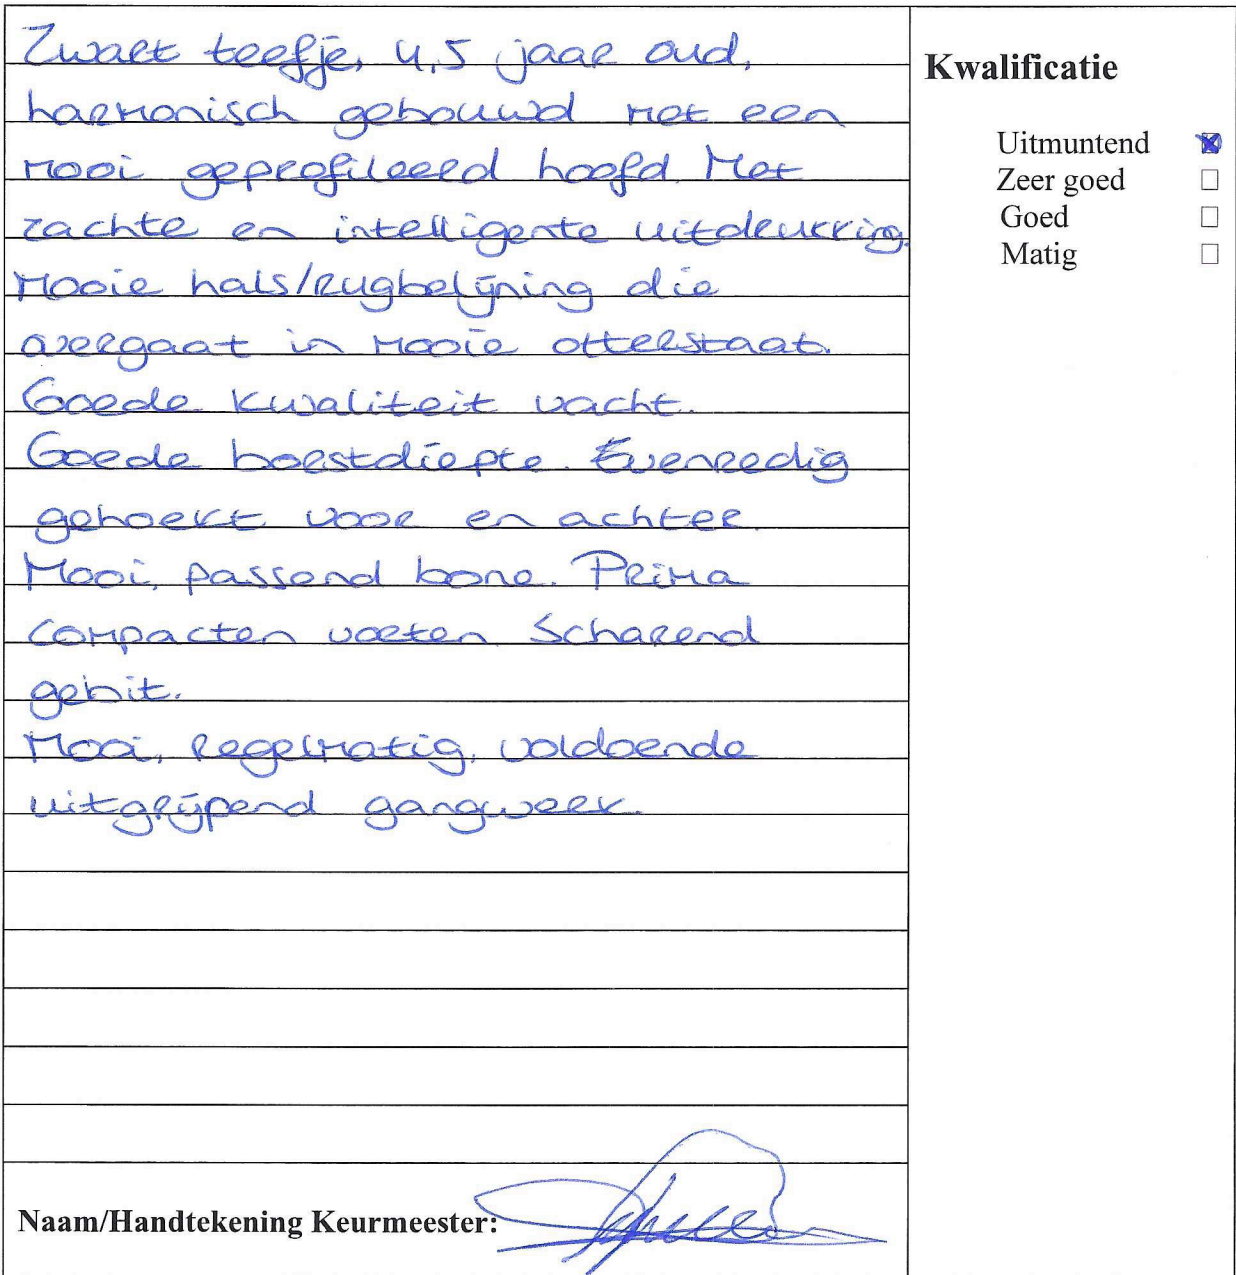 Zwart teefje, 4,5 jaar oud,
harmonisch gebouwd met een
mooi geprofileerd hoofd. Met
zachte en intelligente uitdrukking.
Mooie hals/rugbelijning die
overgaat in mooie otterstaat.
Goede kwaliteit vacht.
Goede borstdiepte. Evenredig
gehoekt voor en achter.
Mooi, passend bone. Prima
compacten voeten Scharend
gebit.
Mooi, regelmatig, voldoende
uitgrijpend gangwerk.
Naam/Handtekening Keurmeester:
Kwalificatie
Uitmuntend
Zeer goed
Goed
Matig